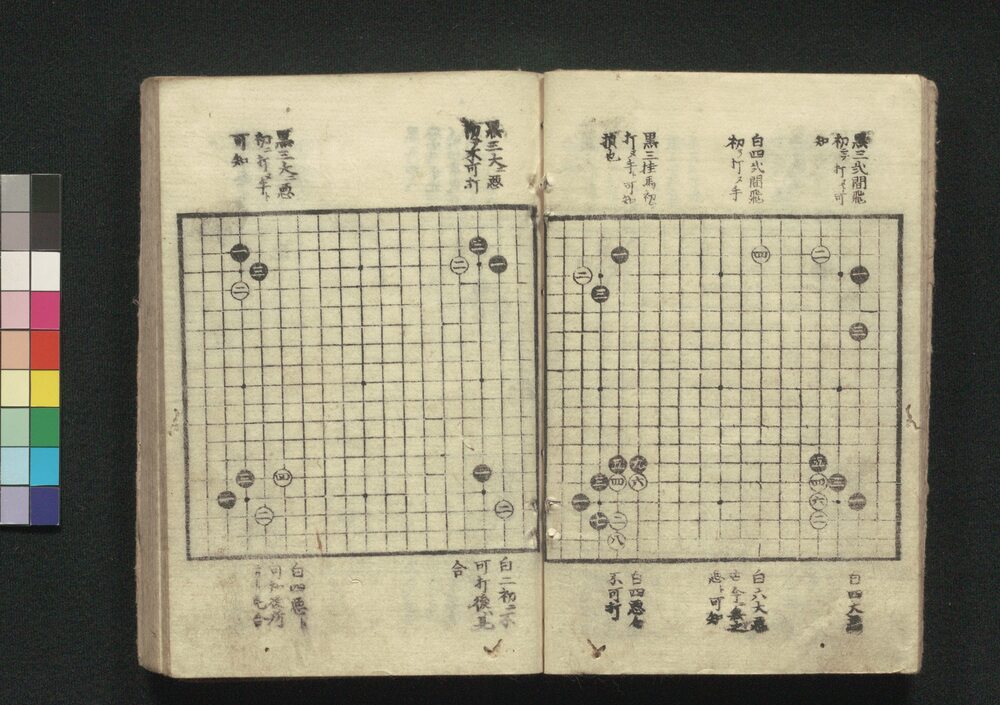 黒三弐間飛
初打ヌ可
知
白四弐間飛
初ヲ打ヌ手
黒三桂馬初
打ヌ手ト可知
損也
四
二
一
三
一
二
三
五
四 三
六 一
二
五 九
三 四 六
一
七 二
八
白四大悪
白六大悪
悪ト可知
白四悪
不可打
黒三大ニ悪
初ヲ不可打
黒三大ニ悪
初ニ打ヌ手ト
可知
三
二 一
一
三
二
一
二
三 四
一
二
白二初ニ不
可打後其
合
白四悪ト
可知後